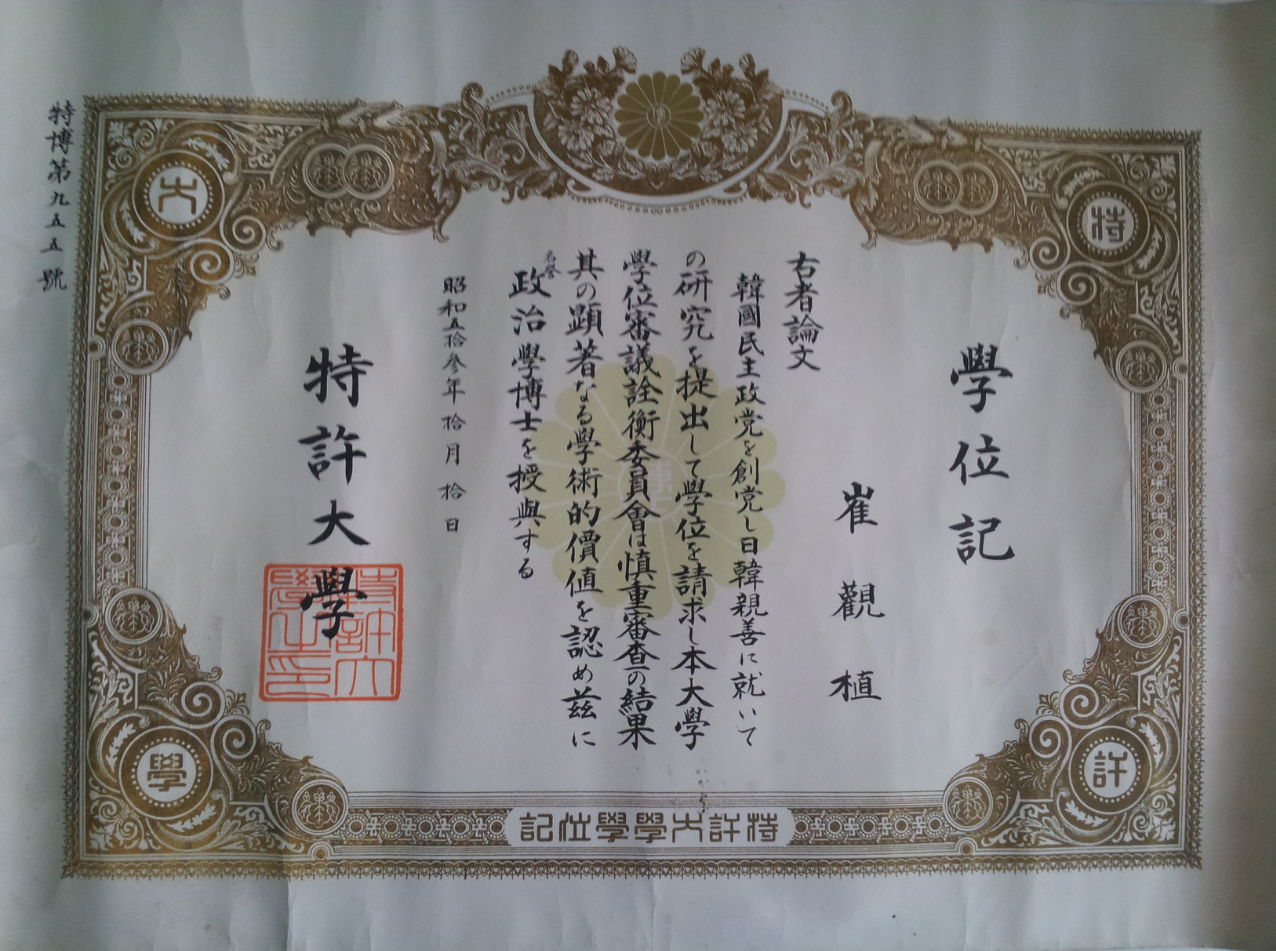 學位記
崔觀植
右者論文
韓國民主政党を創党し日韓親善に就いて
の研究を提出して學位を請求し本大學
學位審議詮衡委員會は慎重審査の結果
其の顕著なる學術的價値を認め茲に
名誉政治學博士を授與する
昭和五拾参年拾月拾日
特許大學
特許大學之印
特博第九五五號
特
許
大
學
特許大學學位記